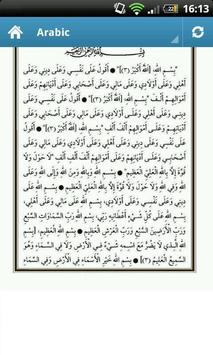 16:13
Arabic
بِسْمِ اللهِ الرَّحْمٰنِ الرَّحِيْمِ
"بِسْمِ اللهِ، اَللهُ أَكْبَرُ (٣)" ● أَقُوْلُ عَلَى نَفْسِيْ وَعَلَى دِيْنِيْ وَعَلَى
أَهْلِيْ وَعَلَى أَوْلَادِيْ وَعَلَى مَالِيْ وَعَلَى أَصْحَابِيْ وَعَلَى أَدْيَانِهِمْ وَعَلَى
أَمْوَالِهِمْ أَلْفَ "بِسْمِ اللهِ، اَللهُ أَكْبَرُ (٣)" ● أَقُوْلُ عَلَى نَفْسِيْ وَعَلَى
دِيْنِيْ وَعَلَى أَهْلِيْ وَعَلَى أَوْلَادِيْ وَعَلَى مَالِيْ وَعَلَى أَصْحَابِيْ وَعَلَى
أَدْيَانِهِمْ وَعَلَى أَمْوَالِهِمْ أَلْفَ أَلْفِ "لَا حَوْلَ وَلَا
قُوَّةَ إِلَّا بِاللهِ الْعَلِيِّ الْعَظِيْمِ" ●
بِسْمِ اللهِ وَبِاللهِ وَمِنَ اللهِ وَإِلَى اللهِ
وَعَلَى اللهِ وَفِي اللهِ وَلَا حَوْلَ وَلَا قُوَّةَ إِلَّا بِاللهِ الْعَلِيِّ الْعَظِيْمِ ●
بِسْمِ اللهِ عَلَى دِيْنِيْ وَعَلَى نَفْسِيْ وَعَلَى أَوْلَادِيْ، بِسْمِ اللهِ عَلَى مَالِيْ وَعَلَى أَهْلِيْ،
بِسْمِ اللهِ عَلَى كُلِّ شَيْءٍ أَعْطَانِيْهِ رَبِّيْ، بِسْمِ اللهِ رَبِّ السَّمٰوَاتِ السَّبْعِ
وَرَبِّ الْأَرَضِيْنَ السَّبْعِ وَرَبِّ الْعَرْشِ الْعَظِيْمِ ●
بِسْمِ
اللهِ الَّذِيْ لَا يَضُرُّ مَعَ اسْمِهِ شَيْءٌ فِي الْأَرْضِ وَلَا فِي السَّمَاءِ وَهُوَ
السَّمِيْعُ الْعَلِيْمُ (٣) ● بِسْمِ اللهِ خَيْرِ الْأَسْمَاءِ فِي الْأَرْضِ وَفِي السَّمَاءِ